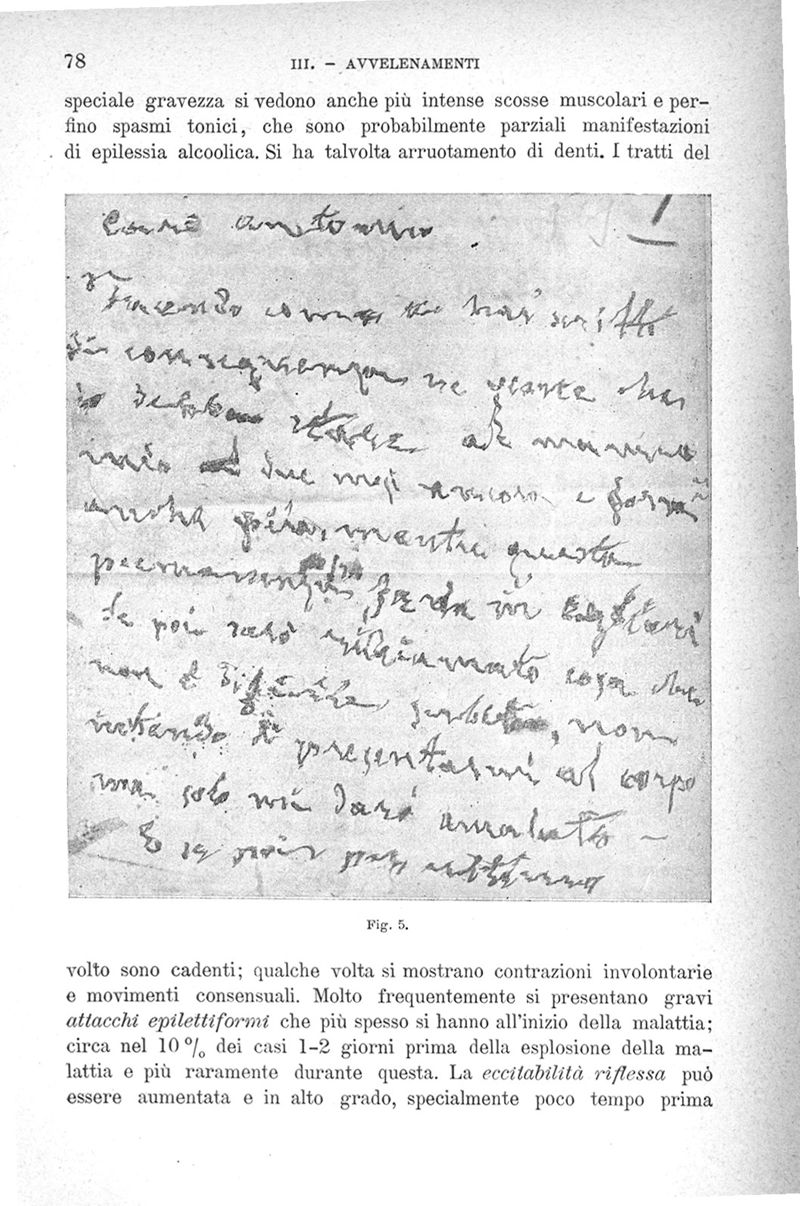 78
III. — AVVELENAMENTI
speciale gravezza si vedono anche più intense scosse muscolari e per-
fino spasmi tonici, che sono probabilmente parziali manifestazioni
di epilessia alcoolica. Si ha talvolta arruotamento di denti. I tratti del
Caro antonio
Facendo come hai scritto
di conseguenza ne viene che
io debba stare al manico
mio due mesi ancora e forse
anche più, mentre questa
permanenza
se poi sarò richiamato cosa che
non è difficile non
presentarmi al corpo
ma solo mi darò amalato —
E se poi per
Fig. 5.
volto sono cadenti; qualche volta si mostrano contrazioni involontarie
e movimenti consensuali. Molto frequentemente si presentano gravi
attacchi epilettiformi che più spesso si hanno all'inizio della malattia;
circa nel 10 % dei casi 1-2 giorni prima della esplosione della ma-
lattia e più raramente durante questa. La eccitabilità riflessa può
essere aumentata e in alto grado, specialmente poco tempo prima